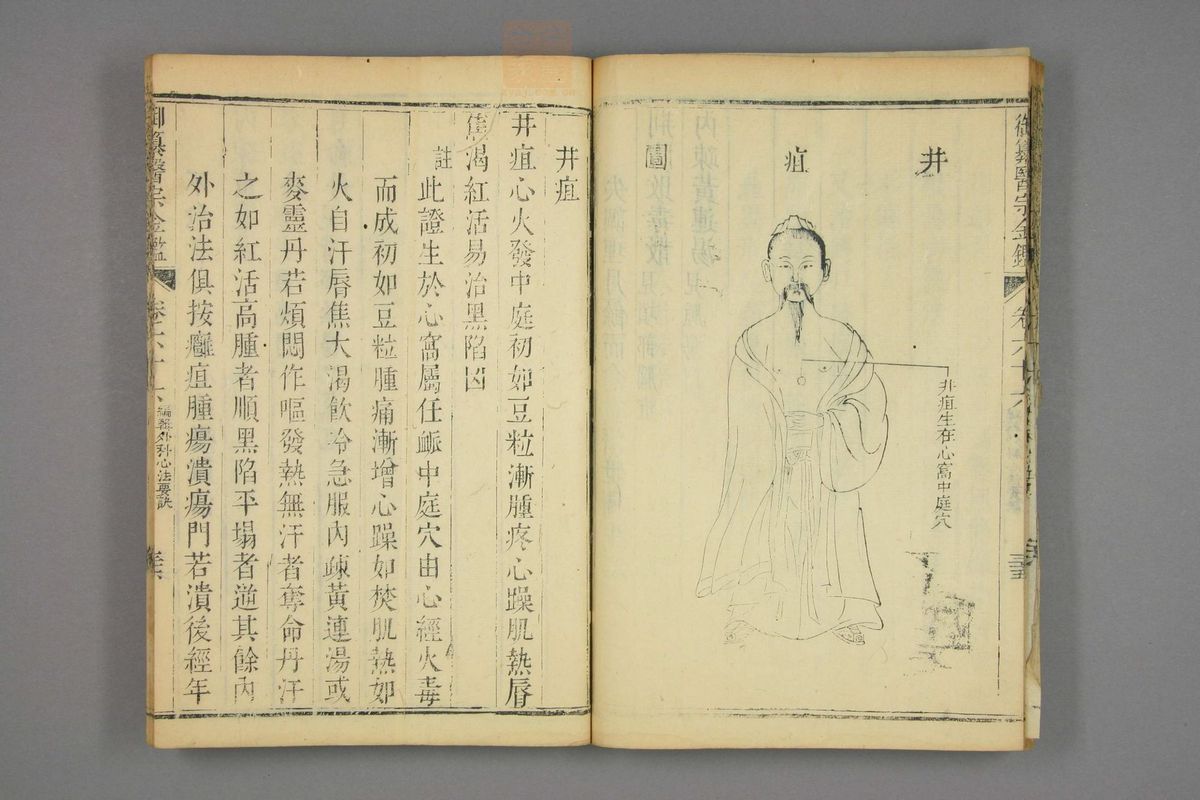 御纂醫宗金鑑
卷六十六
井
疽
圖
井疽生在心窩中庭穴
井疽
井疽心火發中庭初如豆粒漸腫疼心躁肌熱脣
焦渴紅活易治黑陷凶
註
此證生於心窩屬任脈中庭穴由心經火毒
而成初如豆粒腫痛漸增心躁如焚肌熱如
火自汗脣焦大渴飲冷急服內疎黃連湯或
麥靈丹若煩悶作嘔發熱無汗者奪命丹汗
之如紅活高腫者順黑陷平塌者逆其餘內
外治法俱按癰疽腫瘍潰瘍門若潰後經年
御纂醫宗金鑑
卷六十六
編輯外科心法要訣